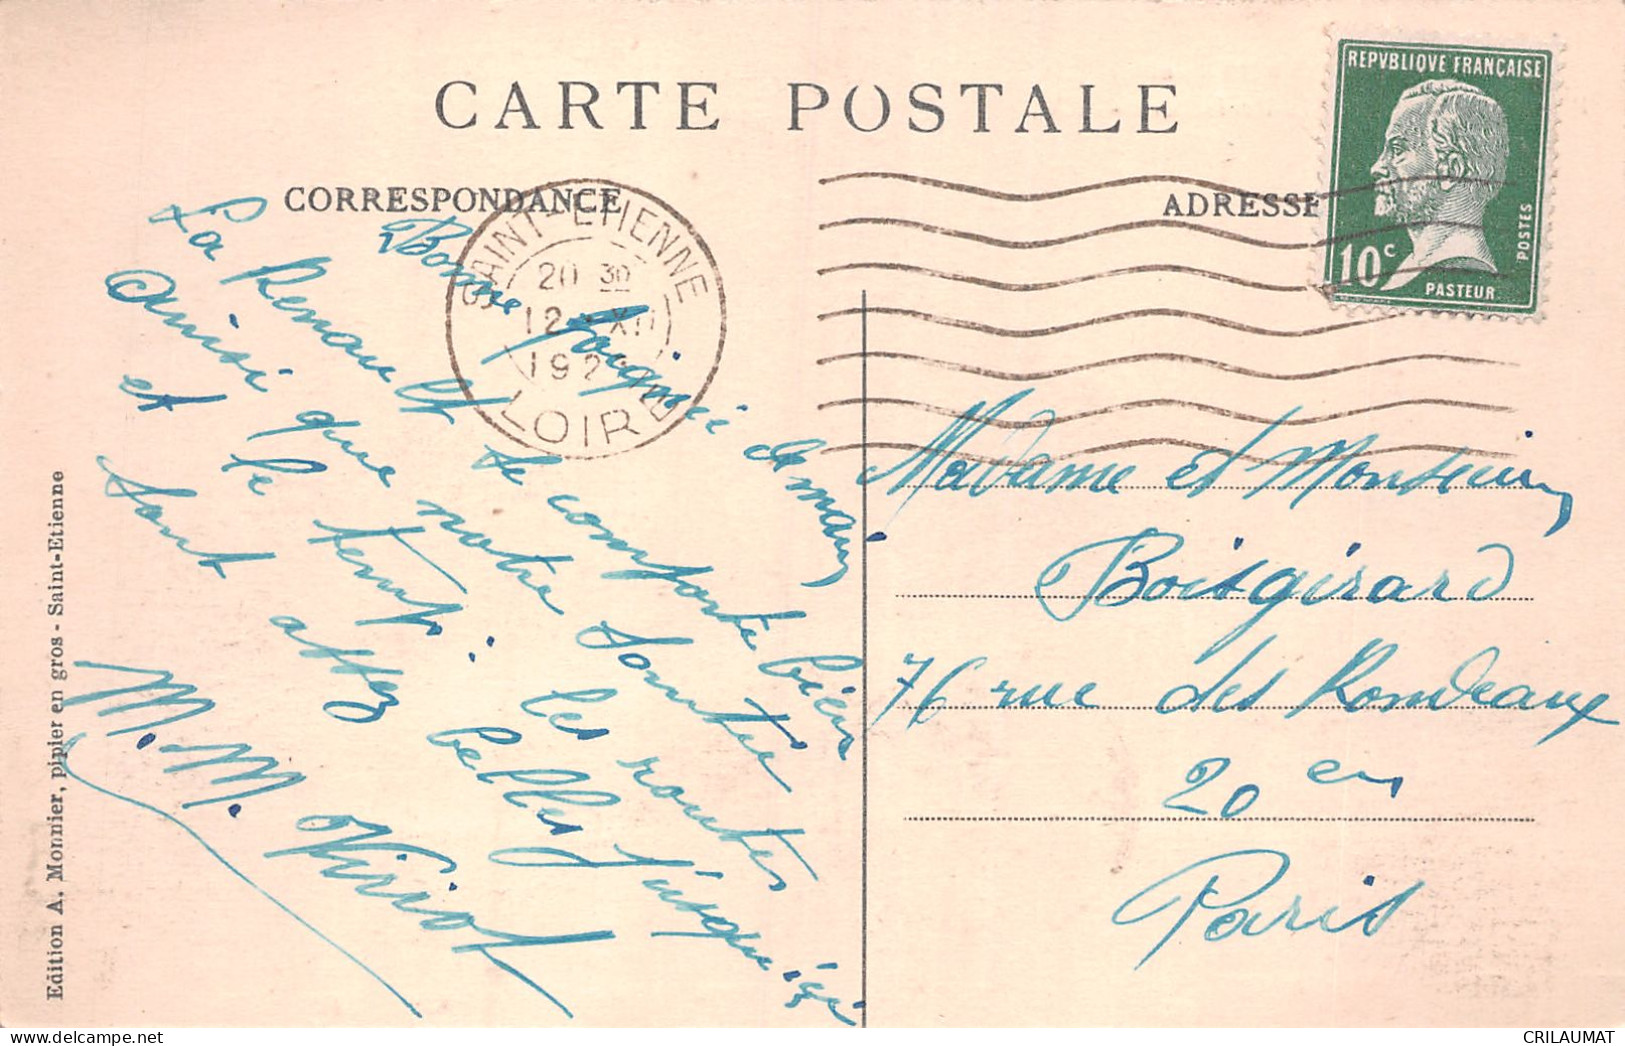 CARTE POSTALE
CORRESPONDANCE
ADRESSE
REPVBLIQVE FRANÇAISE
10c
POSTES
PASTEUR
SAINT-ETIENNE
20 30
12 - XII
192
LOIRE
Bonne
demain
La Renault se comporte bien
ainsi que notre
et le temps. les routes
sont assez belles jusqu'ici
M. M. Viriot
Madame et Monsieur
Boisgirard
76 rue des Rondeaux
20 en
Paris
Edition A. Monnier, pipier en gros - Saint-Etienne
CRILAUMAT